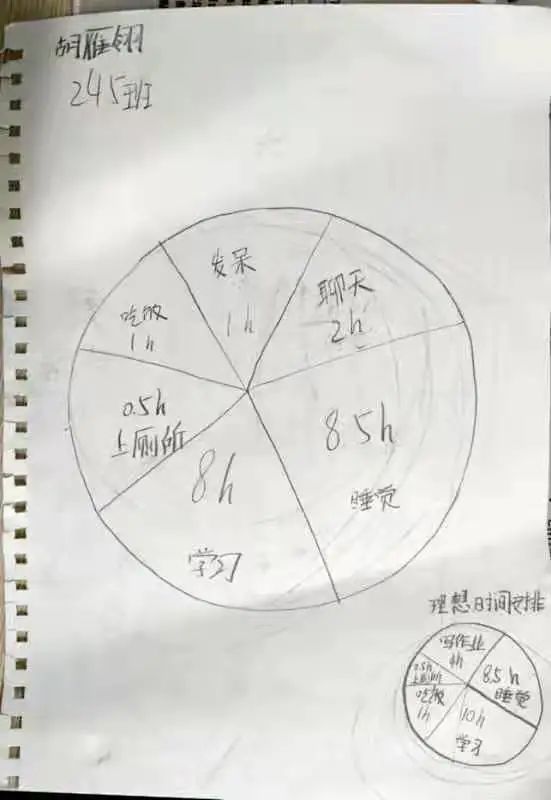 胡雁翎
245班
发呆
1h
聊天
2h
吃饭
1h
0.5h
上厕所
8.5h
睡觉
8h
学习
理想时间安排
写作业
4h
0.5h
上厕所
8.5h
睡觉
吃饭
1h
10h
学习